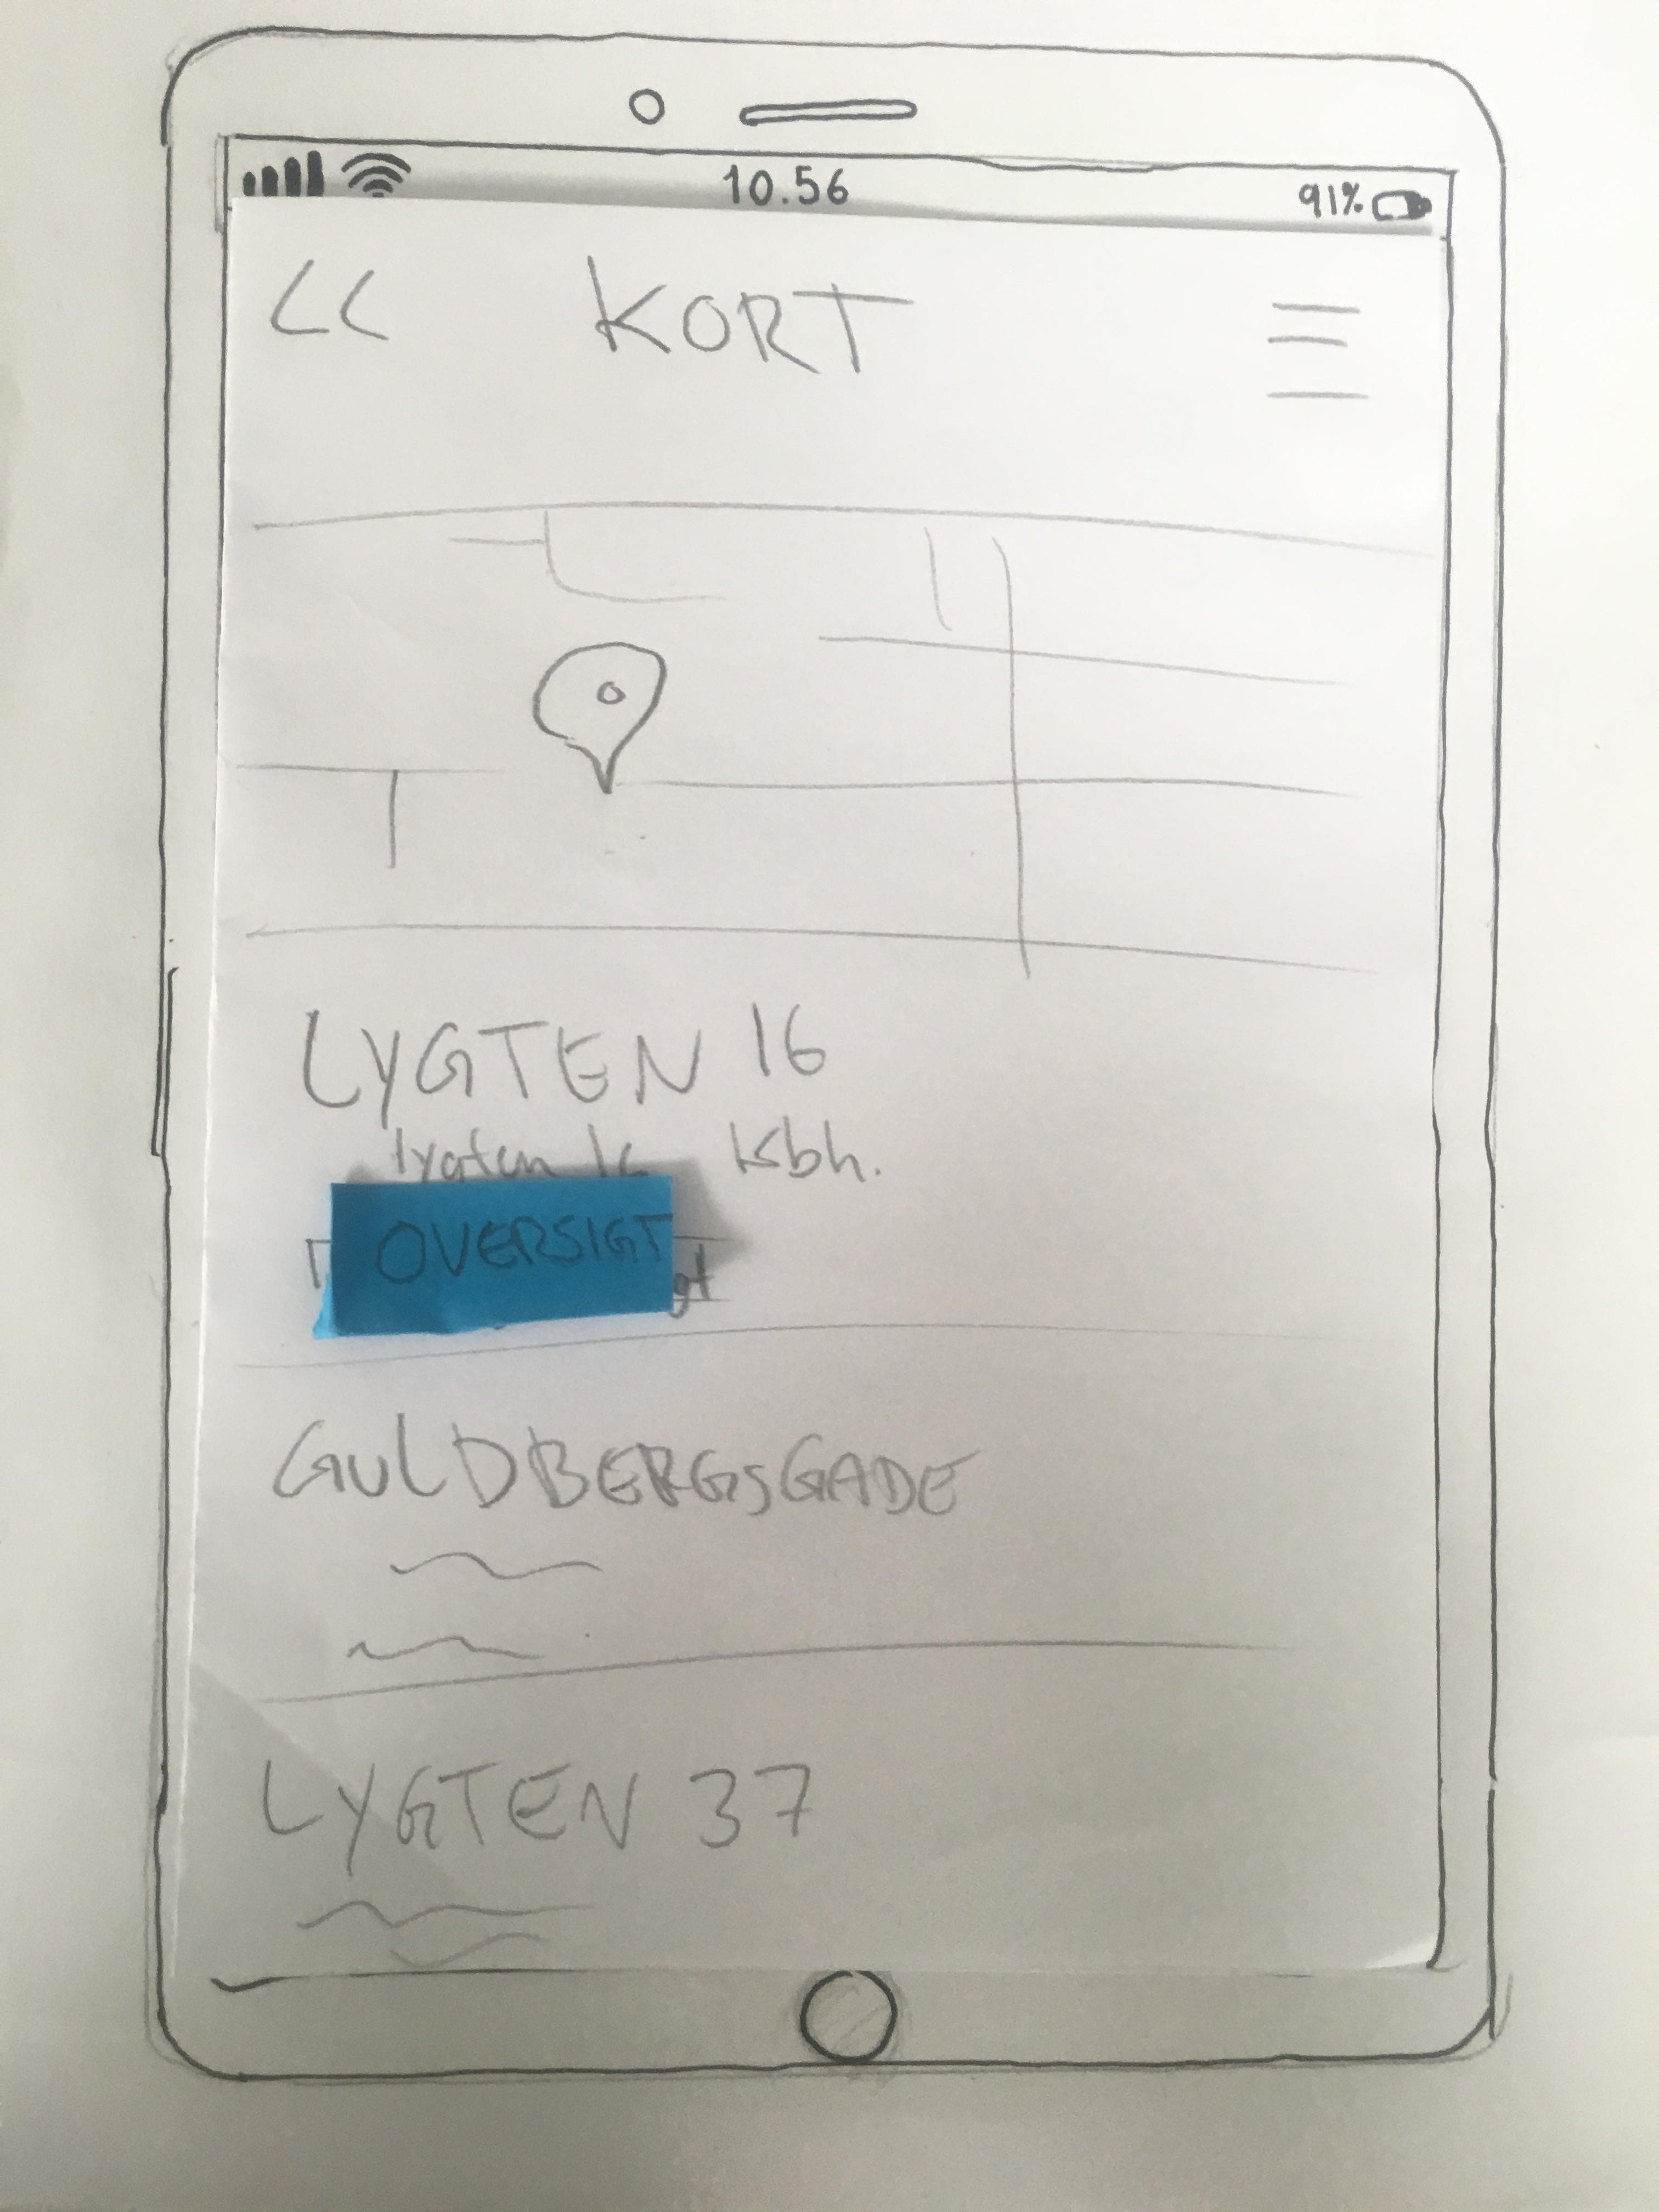 10.56 91%
<< KORT
LYGTEN 16
lygten 16 Kbh.
OVERSIGT
gt
GULDBERGSGADE
LYGTEN 37